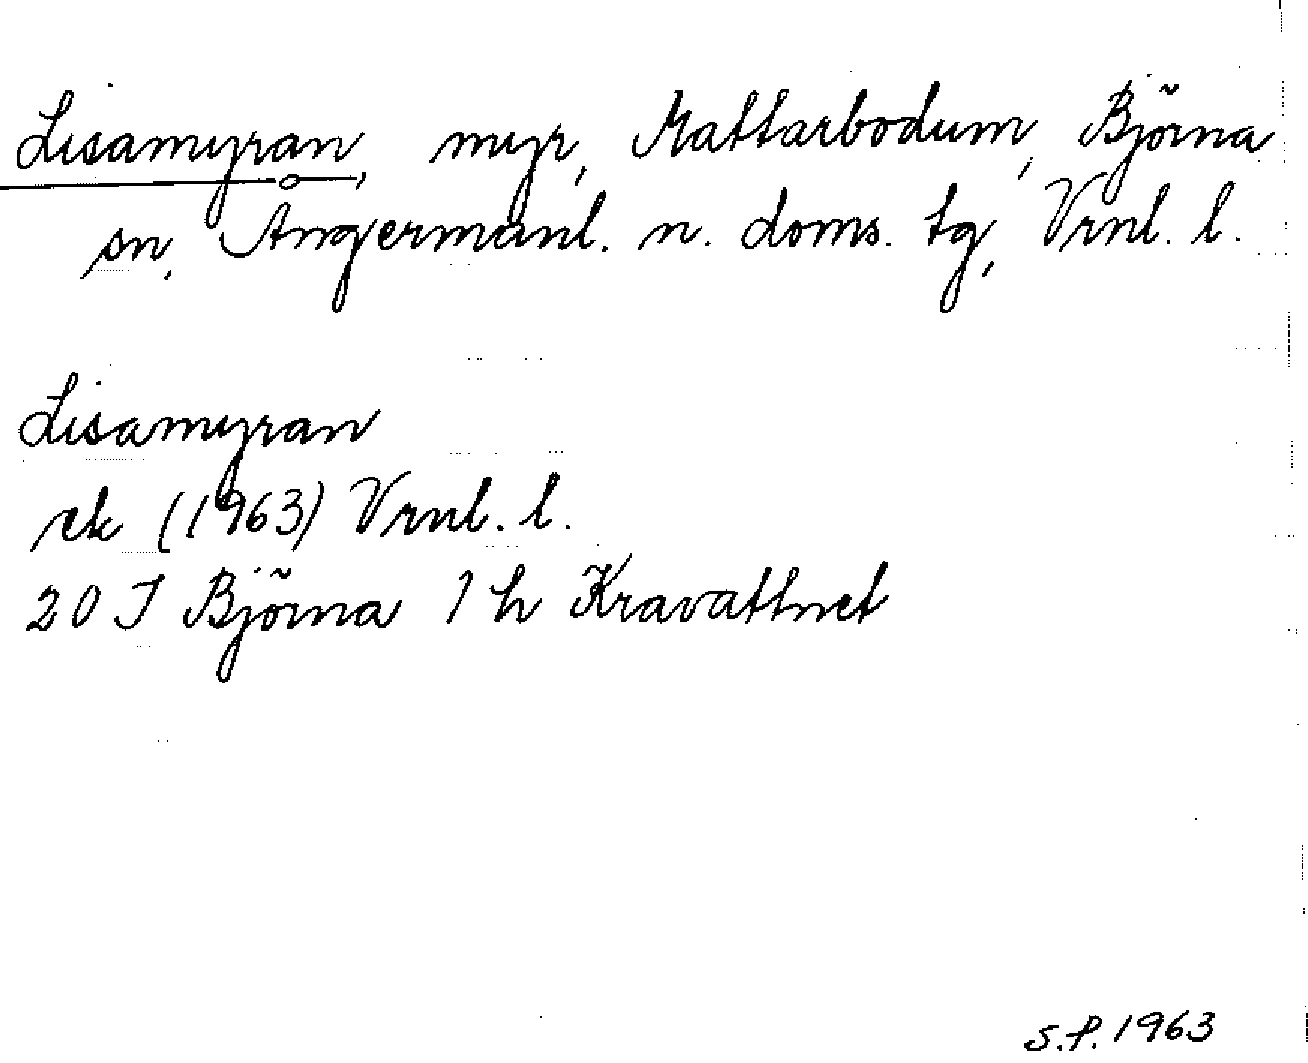 Lisamyran myr, Mattarbodum, Björna
sn, Ångermanl. n. doms. tg, Vrnl. l.
Lisamyran
ek (1963) Vrnl. l.
20 I Björna 1 h Kravattnet
S.P. 1963